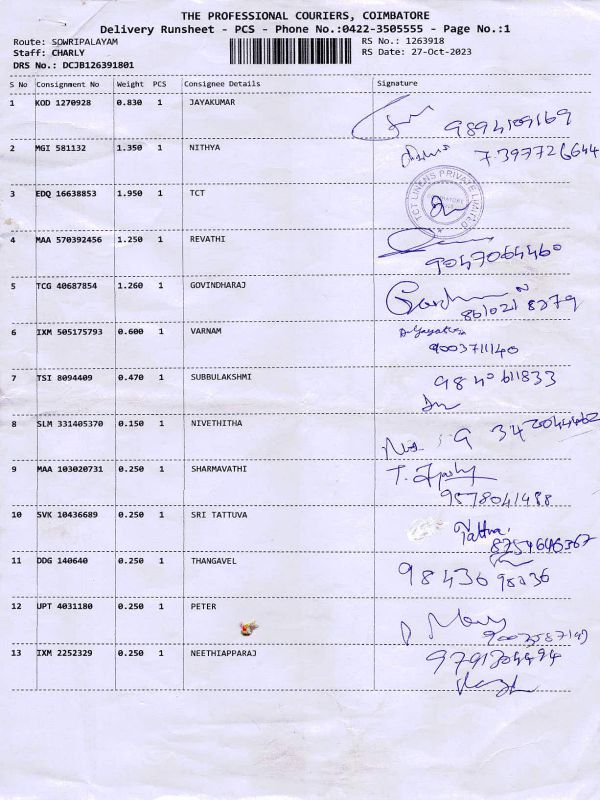 THE PROFESSIONAL COURIERS, COIMBATORE
Delivery Runsheet - PCS - Phone No.:0422-3505555 - Page No.:1
Route: SOWRIPALAYAM RS No.: 1263918
Staff: CHARLY RS Date: 27-Oct-2023
DRS No.: DCJB126391801
S No Consignment No Weight PCS Consignee Details Signature
1 KOD 1270928 0.830 1 JAYAKUMAR
9894109169
2 MGI 581132 1.350 1 NITHYA
7397726644
3 EDQ 16638853 1.950 1 TCT
TCT LINENS PRIVATE LIMITED
4 MAA 570392456 1.250 1 REVATHI
9047064460
5 TCG 40687854 1.260 1 GOVINDHARAJ
861021 8279
6 IXM 505175793 0.600 1 VARNAM
9003711140
7 TSI 8094409 0.470 1 SUBBULAKSHMI
9840611833
8 SLM 331405370 0.150 1 NIVETHITHA
9 MAA 103020731 0.250 1 SHARMAVATHI
9578041488
10 SVK 10436689 0.250 1 SRI TATTUVA
Tattva
8754646367
11 DDG 140640 0.250 1 THANGAVEL
98436 98336
12 UPT 4031180 0.250 1 PETER
13 IXM 2252329 0.250 1 NEETHIAPPARAJ
9791304494